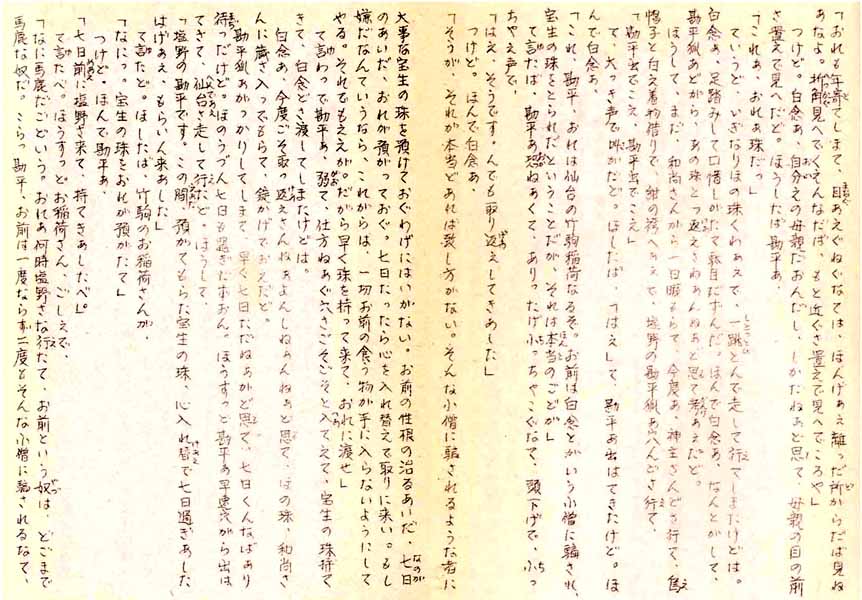 「おれも年寄てしまて、目あえぐねぐなては、ほんげあえ離った所からだば見ね
あなよ。折角見へでくえんなだば、もと近ぐさ置えで見へでころや」
つけど。白念あ、自分えの母親だおんだし、しかたねあど思て、母親の目の前
さ置えで見へだど。ほうしたば勘平あ、
「これあ、おれあ珠だっ」
ていうど、いぎなりほの珠くわあえで、一跳とんで走して行てしまたけどは。
白念あ、足踏みして口惜しがたて駄目だずんだ。ほんで白念あ、なんとがして、
勘平狐あどがら、あの珠とっ返えさねあんねあど思て考あえだど。
ほうして、まだ、和尚さんがら一日暇もらて、今度あ、神主さんどさ行て、烏
帽子と白え着物借りで、紺の袴へあえで、塩野の勘平狐あ穴んどさ行て、
「勘平出でこえ、勘平出でこえ」
て、大っき声で叫がだど。ほしたば、「はえ」て、勘平あ出はてきたけど。ほ
んで白念あ、
「これ、勘平、おれは仙台の竹駒稲荷なるぞ。お前は白念とがいう小僧に騙され、
宝生の珠をとられだということだが、それは本当のごどが」
て言たば、勘平あ恐ねあくて、ありったけ小っちゃこぐなて、頭下げで、小っ
ちゃえ声で、
「はえ、そうです。んでも取り返えしてきあした」
つけど。ほんで白念あ、
「そうが、それが本当どあれば致し方がない。そんな小僧に騙されるような者に
大事な宝生の珠を預けておぐわげにはいがない。お前の性根の治るあいだ、七日
のあいだ、おれが預がっておぐ。七日たったら心を入れ替えて取りに来い。もし
嫌だなんていうなら、これがらは、一切お前の食う物が手に入らないようにして
やる。それでもええが。だがら早く珠を持って来て、おれに渡せ」
て言わって勘平あ、弱て、仕方ねあぐ穴さごそごそと入てえて、宝生の珠持て
きて、白念どさ渡してしまたけどは。
白念あ、今度ごそ取っ返えさんねあよしねあんねあど思て、ほの珠、和尚さ
んに蔵さ入ってもらて、錠かげでおえだど。
勘平狐あがっかりしてしまて、早ぐ七日だねあがど思て、七日くんなばあり
待ったけど。ほのうづん七日も過ぎた本おん。ほうすっど勘平あ早速穴がら出は
てきて、仙台さ走して行たど。ほうして、
「塩野の勘平です。この間、預かてもらた宝生の珠、心入れ替で七日過ぎあした
はげあえ、もらい来あした」
て言たど。ほしたば竹駒のお稲荷さんが、
「なにっ。宝生の珠をおれが預がたて」
つけど。ほんで勘平あ、
「七日前に塩野さ来て、持てきあしたべ」
て言たべ。ほうすっとお稲荷さん、ごしえで、
「なに馬鹿だごどいう。おれあ何時塩野さな行たて、お前という奴は、どごまで
馬鹿な奴だ。こらっ勘平、お前は一度ならず二度とそんな小僧に騙されるなて、